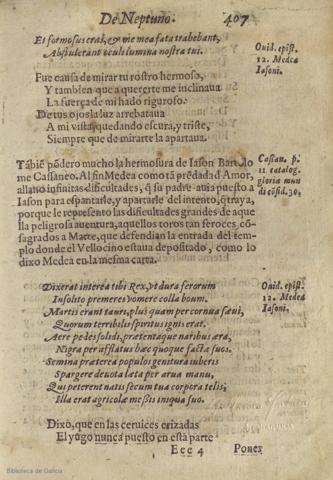 De Neptuno. 407
Et formosus eras, & me mea fata trahebant,
Abstulerant oculi lumina nostra tui.
Ouid. epist.
12. Medea
Iasoni.
Fue causa de mirar tu rostro hermoso,
Y tambien que a quererte me inclinaua
La fuerça de mi hado riguroso.
De tus ojos la luz arrebataua
A mi vista, quedando escura, y triste,
Siempre que de mirarte la apartaua.
Tābiē pōdero mucho la hermosura de Iason Barto̅lo
me Cassaneo. Al fin Medea como tā prēdada d'Amor,
allano infinitas dificultades, q̃ su padre auia puesto a
Iason para espantarle, y apartarle del intento, q̃ traya,
porque le represento las dificultades grandes de aque
lla peligrosa auentura, aquellos toros tan feroces, cō
sagrados a Marte, que defendian la entrada del tem-
plo donde el Vellocino estaua depositado, como lo
dixo Medea en la mesma carta.
Cassan. p.
11 catalog.
gloria mun
di cōsid. 30.
Dixerat interea tibi Rex, vt dura ferorum
Insolito premeres vomere colla boum.
Martis erant tauri, plus quam per cornua sæui,
Quorum terribilis spiritus ignis erat.
Aere pedes solidi, prætentaque naribus æra,
Nigra per afflatus hæc quoque facta suos.
Semina præterea populos genitura iuberis
Spargere deuota lata per arua manu,
Qui peterent natis secum tua corpora telis;
Illa erat agricolæ meßis iniqua suo.
Ouid. epist.
12. Medea
Iasoni.
Dixo, que en las ceruices erizadas
El yugo nunca puesto en esta parte
Ecc 4 Pones
Biblioteca de Galicia